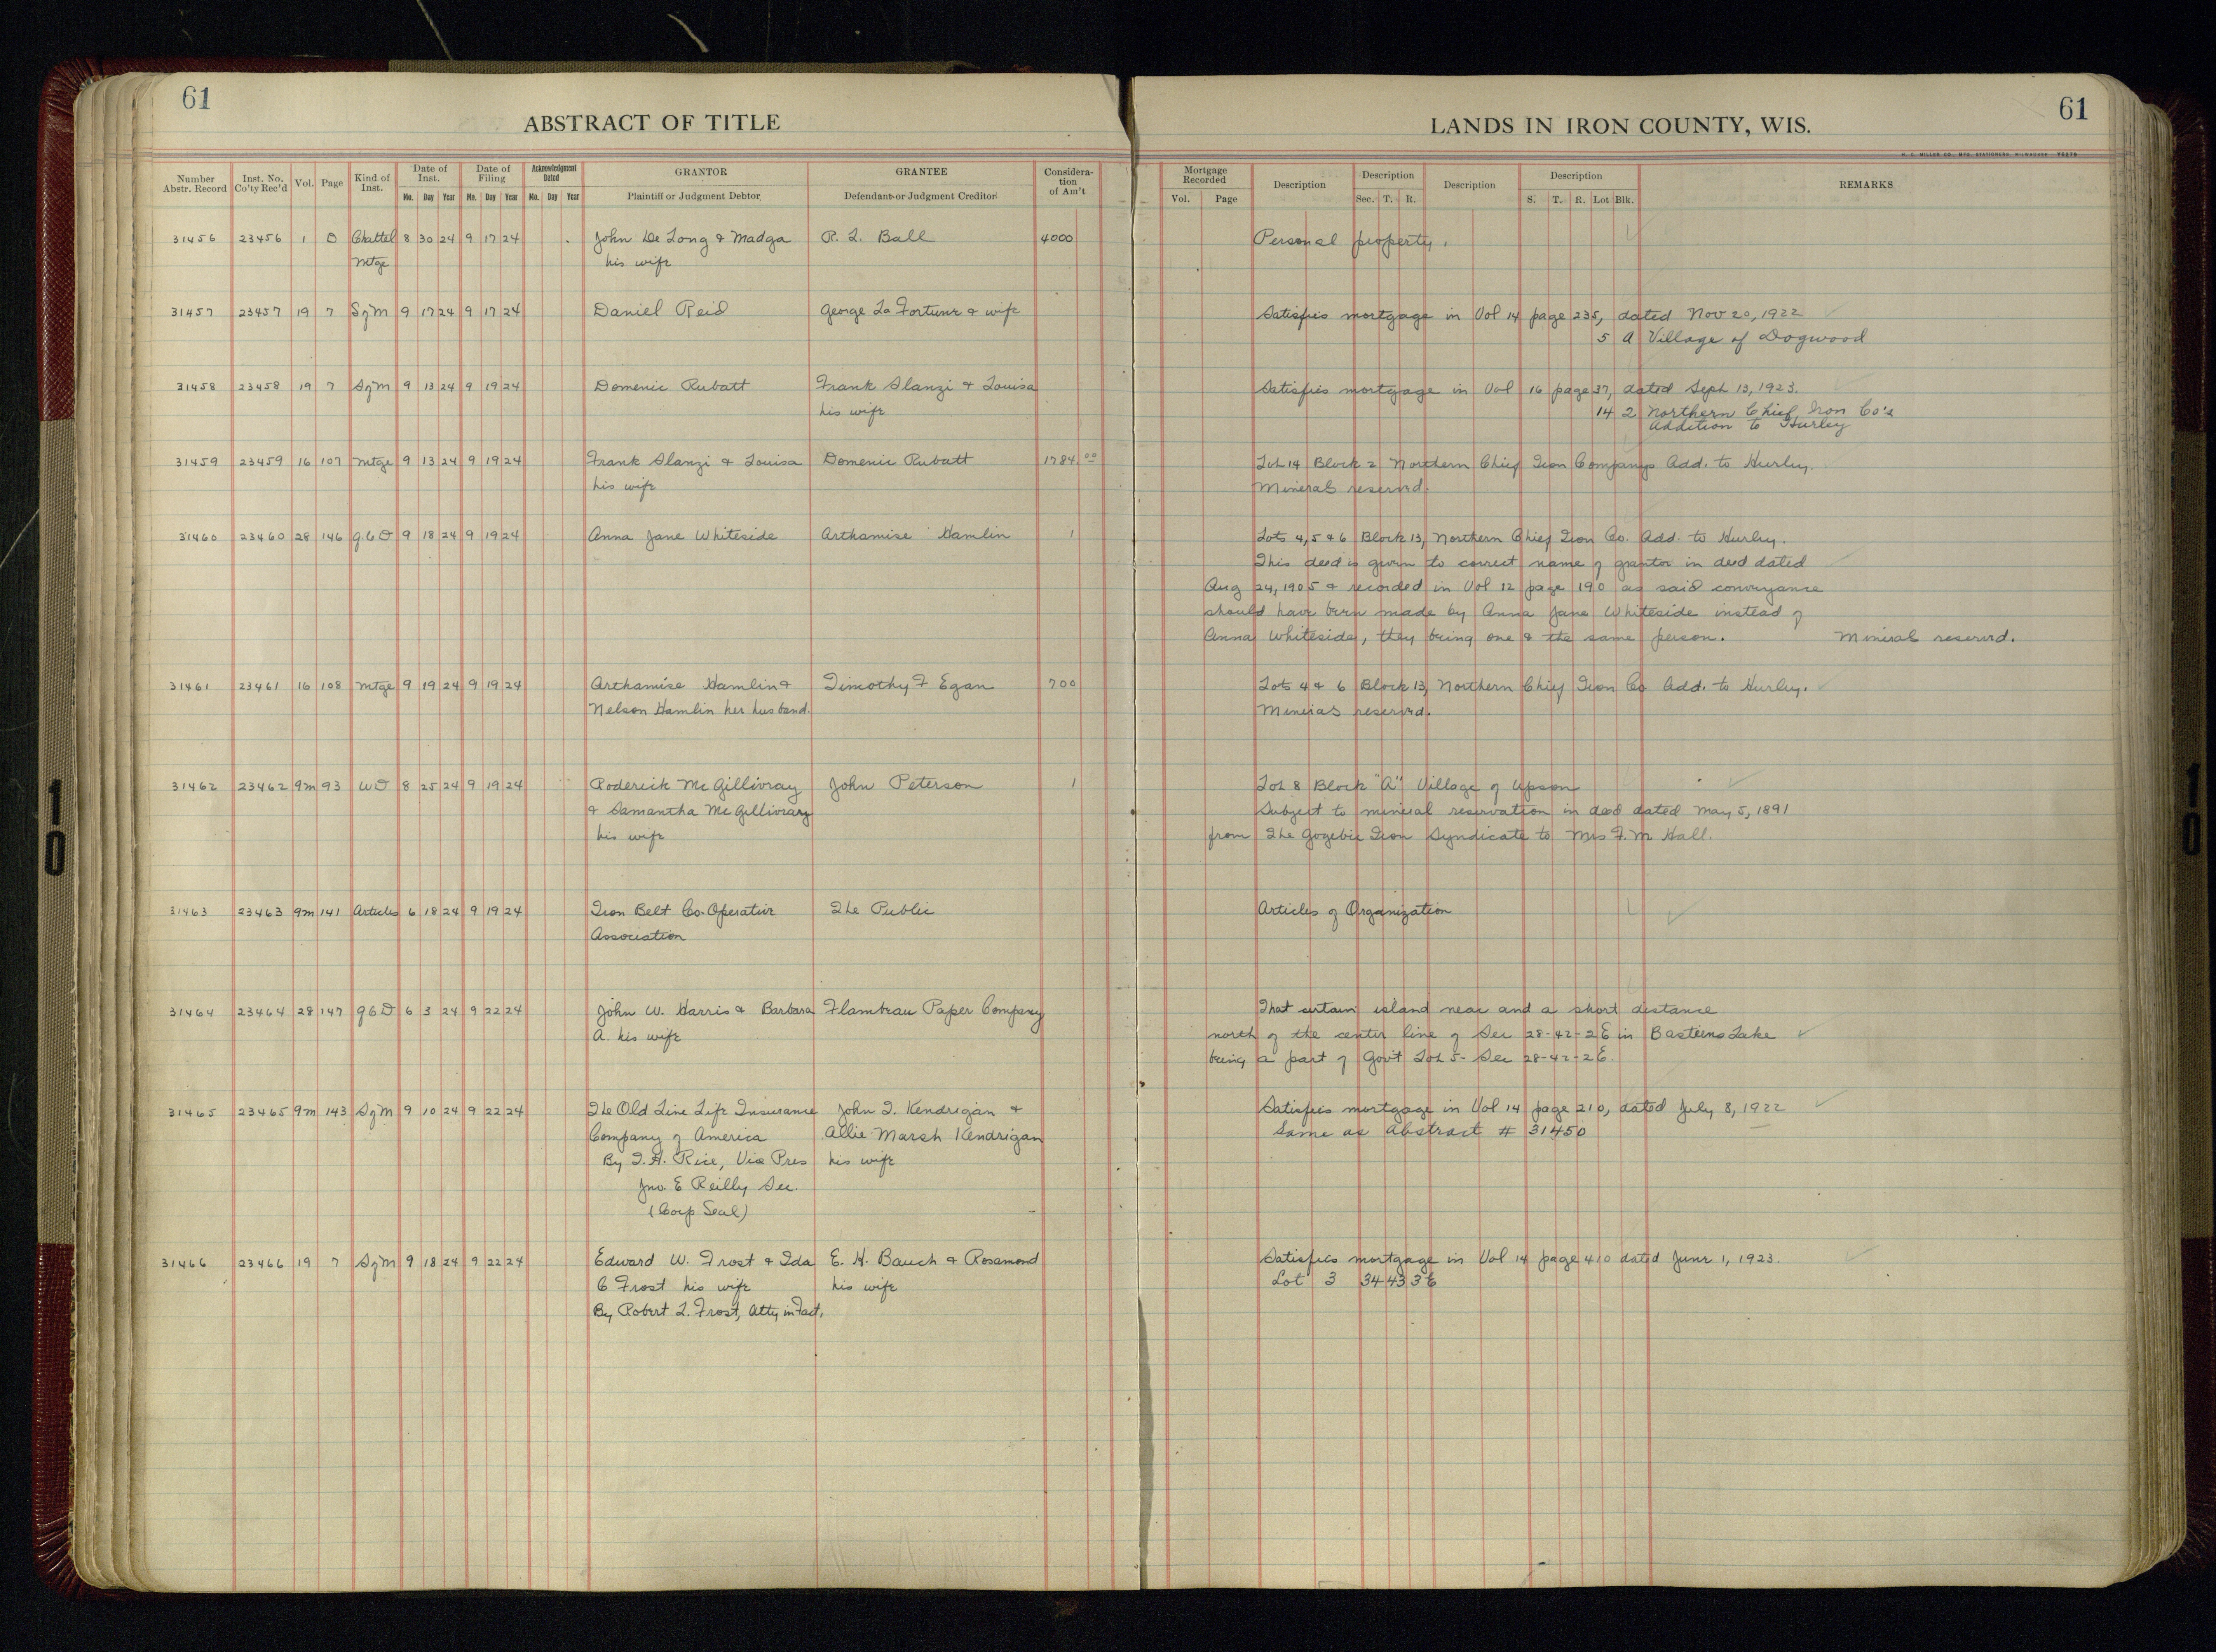 61
ABSTRACT OF TITLE
LANDS IN IRON COUNTY, WIS.
61
H. C. MILLER CO., MFG. STATIONERS, MILWAUKEE
Number Abstr. Record | Inst. No. Co'ty Rec'd | Vol. | Page | Kind of Inst. | Date of Inst. Mo. Day Year | Date of Filing Mo. Day Year | Acknowledgment Dated Mo. Day Year | GRANTOR Plaintiff or Judgment Debtor | GRANTEE Defendant or Judgment Creditor | Considera-tion of Am't | Mortgage Recorded Vol. Page | Description | Description Sec. T. R. | Description | Description S. T. R. Lot Blk. | REMARKS
31456 23456 1 O Chattel 8 30 24 9 17 24 John De Long & Madga R. L. Ball 4000 Personal property.
Mtge his wife
31457 23457 19 7 SofM 9 17 24 9 17 24 Daniel Reid George La Fortune & wife Satisfies mortgage in Vol 14 page 235, dated Nov 20, 1922
5 A Village of Dogwood
31458 23458 19 7 SofM 9 13 24 9 19 24 Domenic Rubatt Frank Slanzi & Louisa Satisfies mortgage in Vol 16 page 37, dated Sept 13, 1923.
his wife 14 2 Northern Chief Iron Co's
Addition to Hurley
31459 23459 16 107 Mtge 9 13 24 9 19 24 Frank Slanzi & Louisa Domenic Rubatt 1784.00 Lot 14 Block 2 Northern Chief Iron Companys Add. to Hurley.
his wife Minerals reserved.
31460 23460 28 146 QCD 9 18 24 9 19 24 Anna Jane Whiteside Arthamise Hamlin 1 Lots 4, 5 & 6 Block 13, Northern Chief Iron Co. Add. to Hurley.
This deed is given to correct name of grantor in deed dated
Aug 24, 1905 & recorded in Vol 12 page 190 as said conveyance
should have been made by Anna Jane Whiteside instead of
Anna Whiteside, they being one & the same person. Mineral reserved.
31461 23461 16 108 Mtge 9 19 24 9 19 24 Arthamise Hamlin & Timothy F Egan 700 Lots 4 & 6 Block 13, Northern Chief Iron Co Add. to Hurley.
Nelson Hamlin her husband. Minerals reserved.
31462 23462 9m 93 WD 8 25 24 9 19 24 Roderick McGillivray John Peterson 1 Lot 8 Block "A" Village of Upson
& Samantha McGillivray Subject to mineral reservation in deed dated May 5, 1891
his wife from The Gogebic Iron Syndicate to Mrs F. M. Hall.
31463 23463 9m 141 Articles 6 18 24 9 19 24 Iron Belt Co-Operative The Public Articles of Organization
Association
31464 23464 28 147 QCD 6 3 24 9 22 24 John W. Harris & Barbara Flambeau Paper Company That certain island near and a short distance
A. his wife north of the center line of Sec 28-42-2E in Basteens Lake
being a part of Gov't Lot 5- Sec 28-42-2E.
31465 23465 9m 143 SofM 9 10 24 9 22 24 The Old Line Life Insurance John T. Kendrigan & Satisfies mortgage in Vol 14 page 210, dated July 8, 1922
Company of America Allie Marsh Kendrigan Same as Abstract # 31450
By T. H. Rice, Vice Pres his wife
Jno. E Reilly Sec.
(Corp Seal)
31466 23466 19 7 SofM 9 18 24 9 22 24 Edward W. Frost & Ida E. H. Bauch & Rosamond Satisfies mortgage in Vol 14 page 410 dated June 1, 1923.
C Frost his wife his wife Lot 3 34 43 3E
By Robert L. Frost, Atty in Fact,
10
10